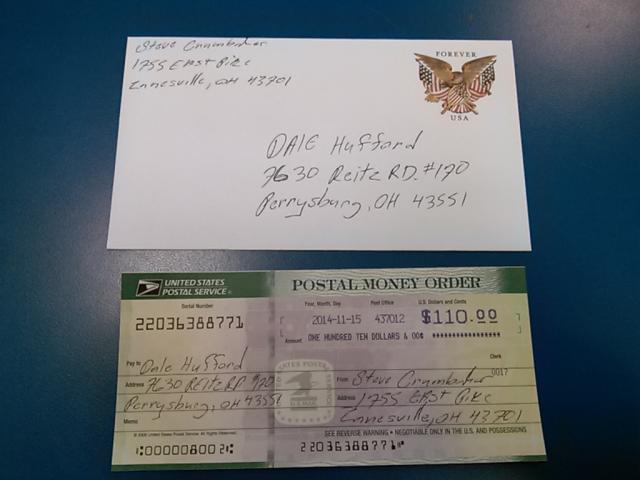 Steve Crumbaker
1755 EAst Pike
Znnesville, OH 43701
FOREVER
USA
DALE Hufford
7630 Reitz RD. #170
Perrysburg, OH 43551
UNITED STATES
POSTAL SERVICE
POSTAL MONEY ORDER
Serial Number
Year, Month, Day Post Office U.S. Dollars and Cents
22036388771
2014-11-15 437012 $110.00
Amount ONE HUNDRED TEN DOLLARS & 00¢ ******************
Clerk
0017
Pay to Dale Hufford
Address 7630 REitz RD #170
Perrysburg, OH 43551
Memo
UNITED STATES POSTAL
US MAIL
From Steve Crumbaker
Address 1755 EAst Pike
Znnesville, OH 43701
SEE REVERSE WARNING • NEGOTIABLE ONLY IN THE U.S. AND POSSESSIONS
© 2008 United States Postal Service. All Rights Reserved.
⑆000000800 2⑆
22036388771⑈